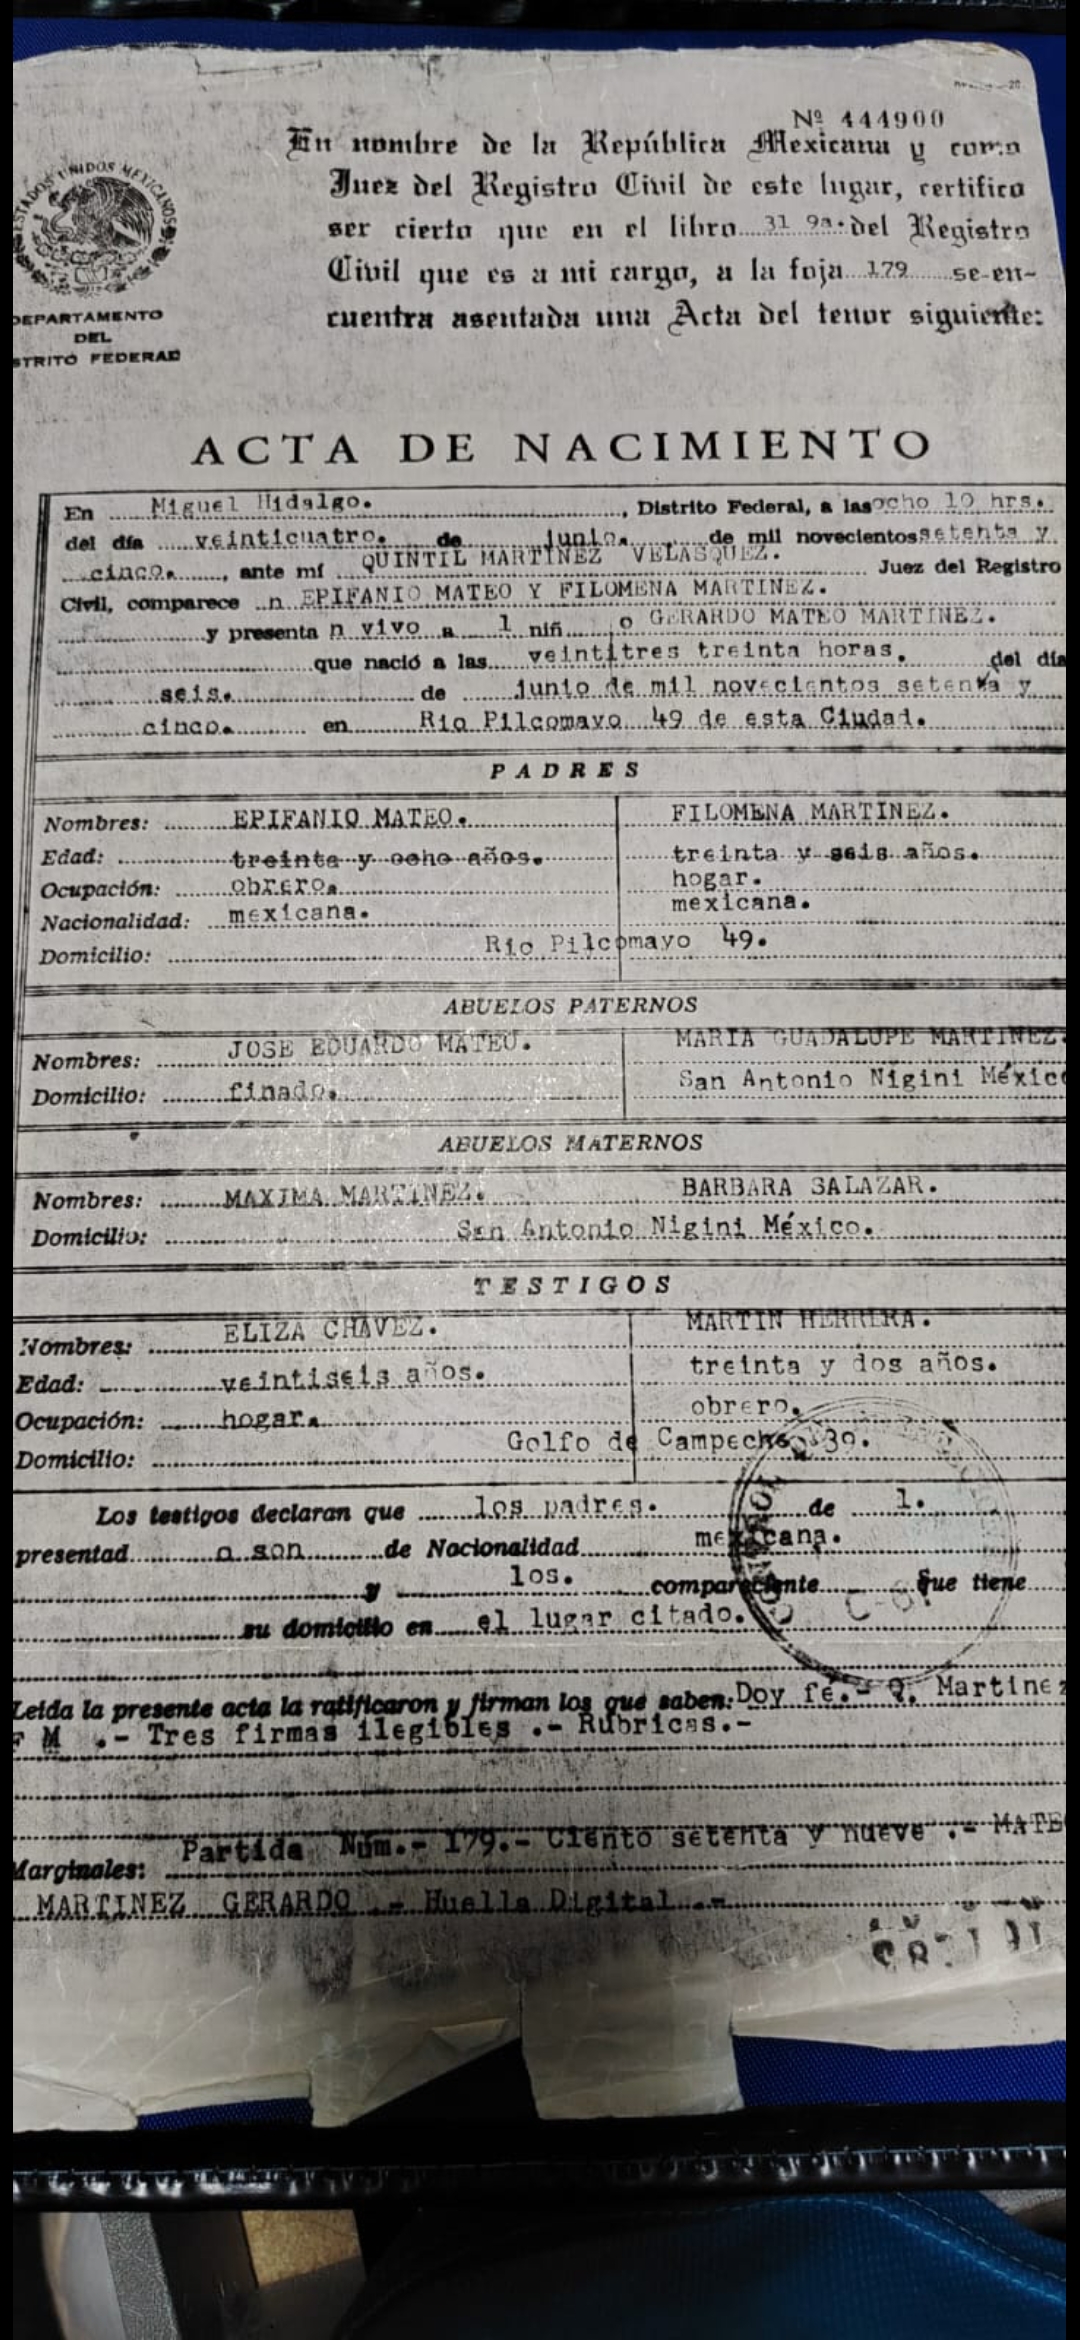 Nº 444900
En nombre de la República Mexicana y como
Juez del Registro Civil de este lugar, certifico
ser cierto que en el libro 31 9a. del Registro
Civil que es a mi cargo, a la foja 179 se en-
cuentra asentada una Acta del tenor siguiente:
ESTADOS UNIDOS MEXICANOS
DEPARTAMENTO
DEL
STRITO FEDERAL
ACTA DE NACIMIENTO
En Miguel Hidalgo. , Distrito Federal, a las ocho 10 hrs.
del día veinticuatro. de junio. de mil novecientos setenta y
cinco. , ante mí QUINTIL MARTINEZ VELASQUEZ. Juez del Registro
Civil, comparece n EPIFANIO MATEO Y FILOMENA MARTINEZ.
y presenta n vivo a 1 niñ o GERARDO MATEO MARTINEZ.
que nació a las veintitres treinta horas. del día
seis. de junio de mil novecientos setenta y
cinco. en Rio Pilcomayo 49 de esta Ciudad.
PADRES
Nombres: EPIFANIO MATEO. FILOMENA MARTINEZ.
Edad: treinta y ocho años. treinta y seis años.
Ocupación: obrero. hogar.
Nacionalidad: mexicana. mexicana.
Domicilio: Rio Pilcomayo 49.
ABUELOS PATERNOS
Nombres: JOSE EDUARDO MATEO. MARIA GUADALUPE MARTINEZ.
Domicilio: finado. San Antonio Nigini México
ABUELOS MATERNOS
Nombres: MAXIMA MARTINEZ. BARBARA SALAZAR.
Domicilio: San Antonio Nigini México.
TESTIGOS
Nombres: ELIZA CHAVEZ. MARTIN HERRERA.
Edad: veintiseis años. treinta y dos años.
Ocupación: hogar. obrero.
Domicilio: Golfo de Campeche 39.
Los testigos declaran que los padres. de 1.
presentad o son de Nacionalidad mexicana.
y los. compareciente Que tiene
su domicilio en el lugar citado.
Leida la presente acta la ratificaron y firman los que saben: Doy fé.- Q. Martinez
F M .- Tres firmas ilegibles .- Rubricas.-
Partida Núm.- 179.- Ciento setenta y nueve .- MATEO
Marginales:
MARTINEZ GERARDO .- Huella Digital .-